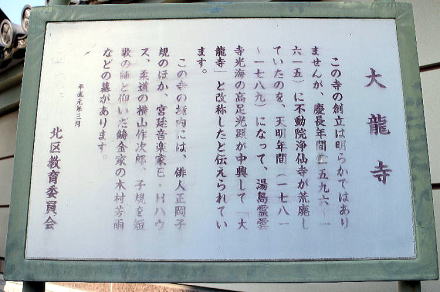 大龍寺
この寺の創立は明らかではあり
ませんが、慶長年間(一五九六〜一
六一五)に不動院浄仙寺が荒廃し
ていたのを、天明年間(一七八一
〜一七八九)になって、湯島霊雲
寺光海の高足光顕が中興して「大
龍寺」と改称したと伝えられてい
ます。
この寺の境内には、俳人正岡子
規のほか、宮廷音楽家E・Hハウ
ス、柔道の横山作次郎、子規を短
歌の師と仰いだ鋳金家の木村芳雨
などの墓があります。
平成元年三月
北区教育委員会